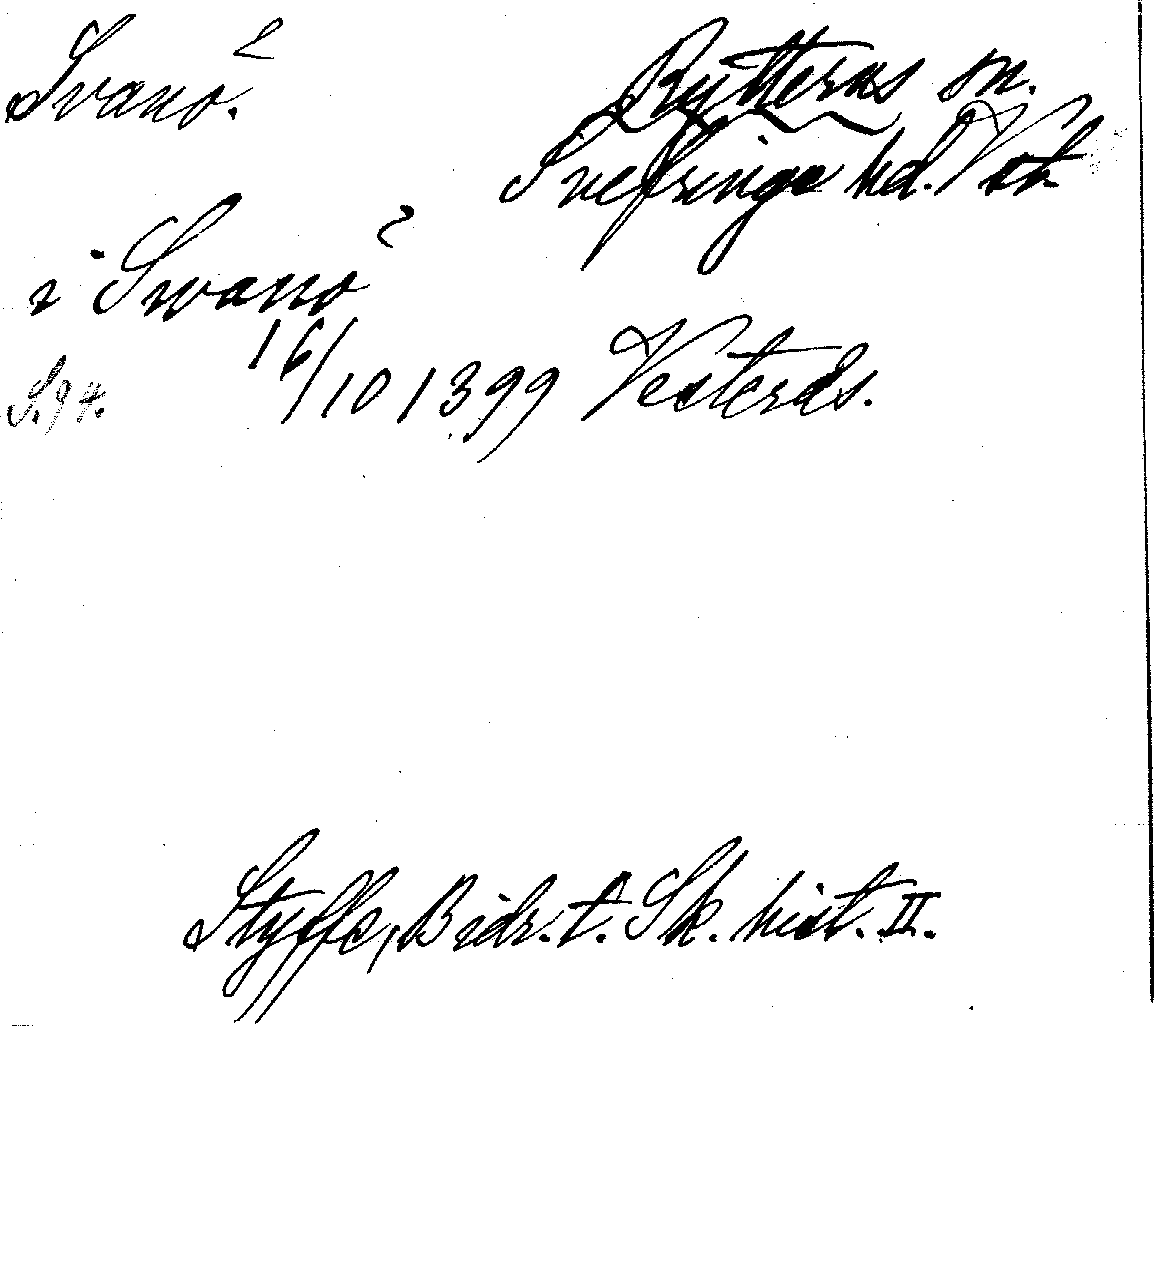 Svanö.
Rytterns sn.
Snefringe hd. Vstm
i Swanö
S. 94. 16/10 1399 Vesterås.
Styffe, Bidr. t. Sk. hist. II.